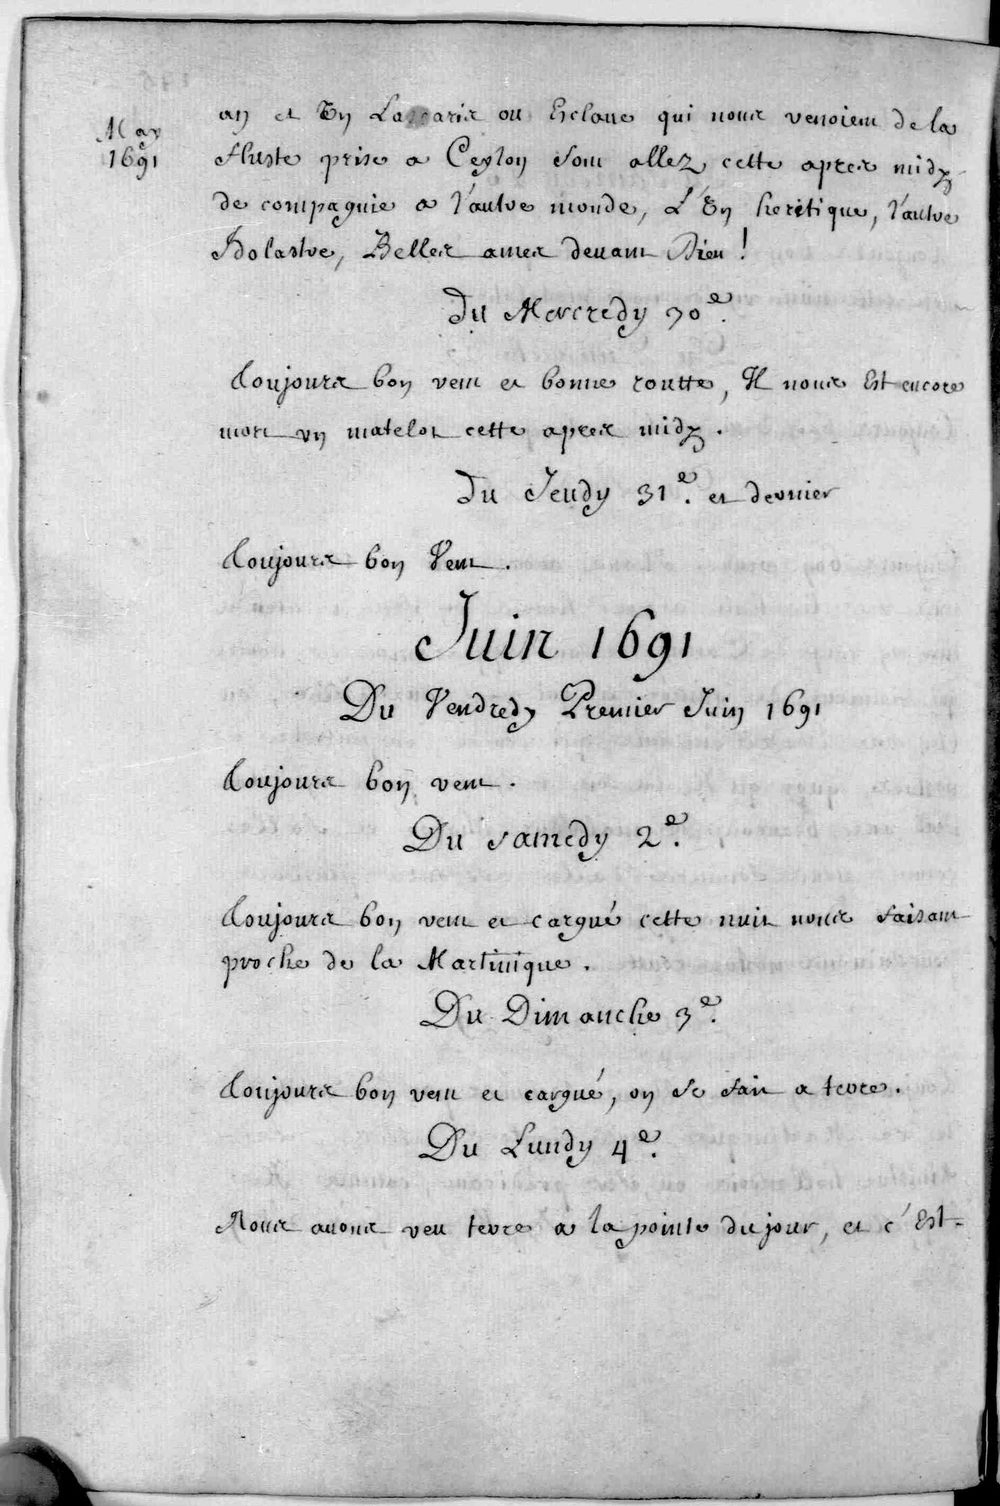 May
1691
an et Un Lascaris ou Esclave qui nous venoient de la
fluste prise a Ceylon sont allez cette apres midy
de compagnie a l'autre monde, L'Un heretique, l'autre
Idolastre, Belles ames devant Dieu !
Du Mercredy 30e.
Toujours bon vent et bonne routte, Il nous Est encore
mort un matelot cette apres midy.
Du Jeudy 31e. et dernier
Toujours bon Vent.
Juin 1691
Du Vendredy Premier Juin 1691
Toujours bon vent.
Du Samedy 2e.
Toujours bon vent et cargué cette nuit nous faisant
proche de la Martinique.
Du Dimanche 3e.
Toujours bon vent et cargué, on se fait a terre.
Du Lundy 4e.
Nous avons veu terre a la pointe du jour, et c'Est-